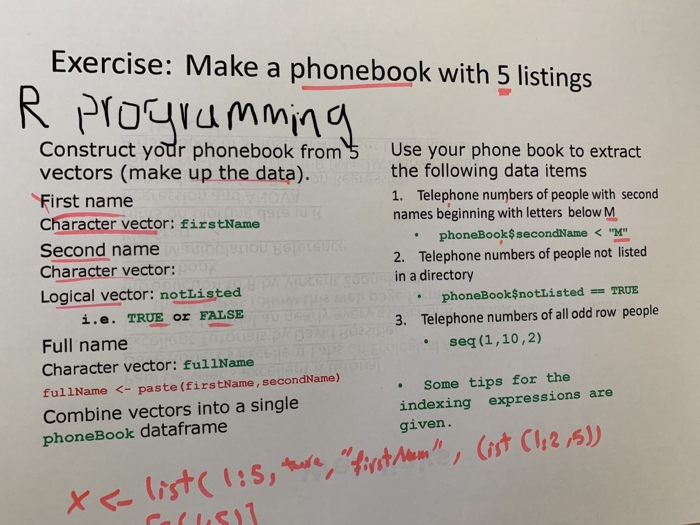 Exercise: Make a phonebook with 5 listings
R programming
Construct your phonebook from 5
vectors (make up the data).
First name
Character vector: firstName
Second name
Character vector:
Logical vector: notListed
i.e. TRUE or FALSE
Full name
Character vector: fullName
fullName <- paste(firstName,secondName)
Combine vectors into a single
phoneBook dataframe
Use your phone book to extract
the following data items
1. Telephone numbers of people with second
names beginning with letters below M
• phoneBook$secondName < "M"
2. Telephone numbers of people not listed
in a directory
• phoneBook$notListed == TRUE
3. Telephone numbers of all odd row people
• seq(1,10,2)
• Some tips for the
indexing expressions are
given.
x <- list( 1:5, true, "first Nam", list (1,2,5))